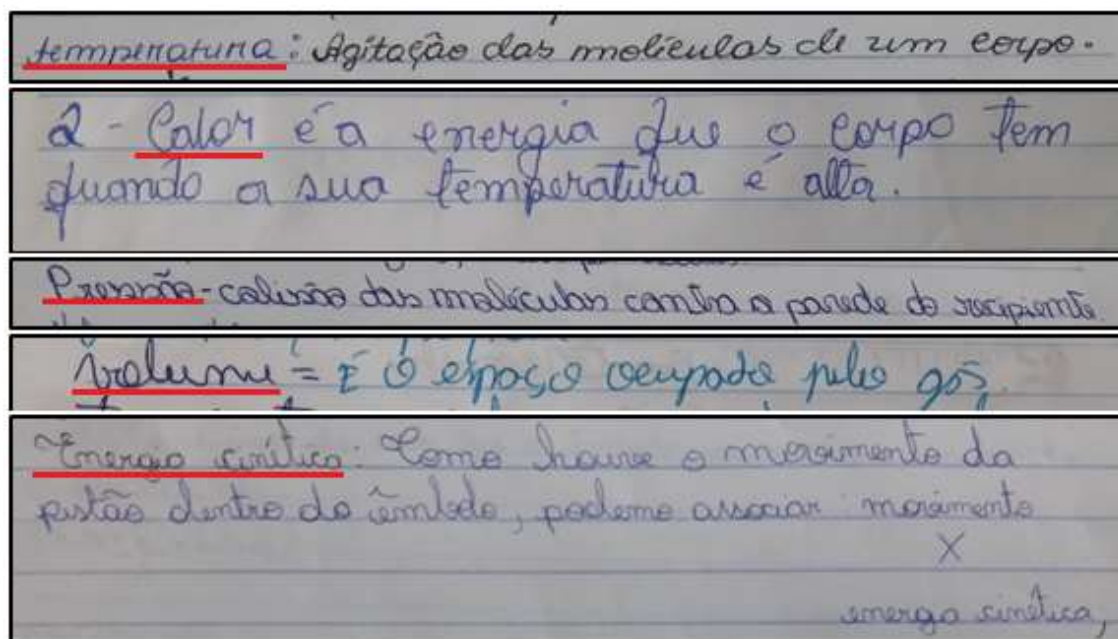 temperatura: Agitação das moléculas de um corpo.
2 - Calor é a energia que o corpo tem
quando a sua temperatura é alta.
Pressão - colisão das moléculas contra a parede do recipiente.
Volume = É o espaço ocupado pelo gás.
Energia cinética: Como houve o movimento da
pistão dentro do êmbolo, podemo associar movimento
X
energa cinética,